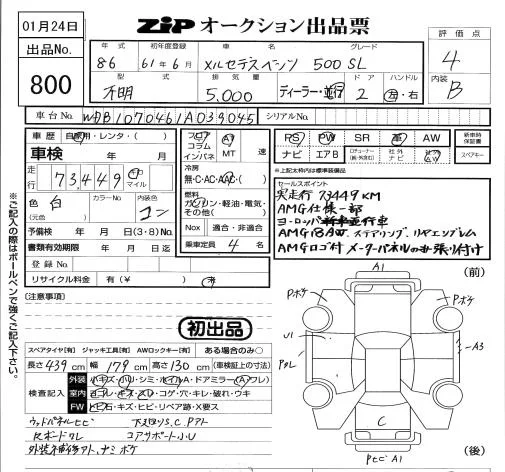 01月24日
ZIP オークション出品票
出品No.
800
年式 初年度登録 車名 グレード
86 61年6月 メルセデスベンツ 500SL
型式 排気量 ドア ハンドル
不明 5,000 ディーラー・並行 2 左・右
評価点
4
内装
B
車台No. WDB1070461A039045 シリアルNo.
車歴 自家用・レンタ・( )
車検 年 月
走行 73,449 km マイル
色 白 (元色)
カラーNo.
内装色
年 月 (3・8) No.
書類有効期限 年 月 日迄
登録No.
リサイクル料金 有(¥ ) 未
フロア コラム インパネ
AT
MT 速
冷房
無・C・AC・AAC・( )
燃料
ガソリン・軽油・電気・その他( )
Nox 適合・非適合
乗車定員 4 名
PS PW SR 革 AW
ナビ エアB 社外ナビ
新車時保証書
スペアキー
※上記太枠内は標準装備品
セールスポイント
実走行 73449KM
AMG仕様一部
ヨーロッパ 並行車
AMG ステアリング、リヤエンブレム
AMGロゴ付 メーターパネルのみ張り付け
※ご記入の際はボールペンで強くご記入下さい。
[注意事項]
初出品
スペアタイヤ[有] ジャッキ工具[有] AWロックキー[有] ある場合のみ○
長さ 439 cm 幅 179 cm 高さ 130 cm (車検証上の寸法)
検査記入
外装 小キズ・小U・シミ・ホイルA・ドアミラー(A ワレ)
室内 ヨゴレ・キズ・スレ・コゲ・穴・キレ・破れ・ウキ
FW トビ石・キズ・ヒビ・リペア跡・X要ス
ウッドパネルヒビ 下廻りS.C Pアト
コアサポート小U
(前)
A1
Pボケ
Pボケ
U1
A3
C
A1
(後)